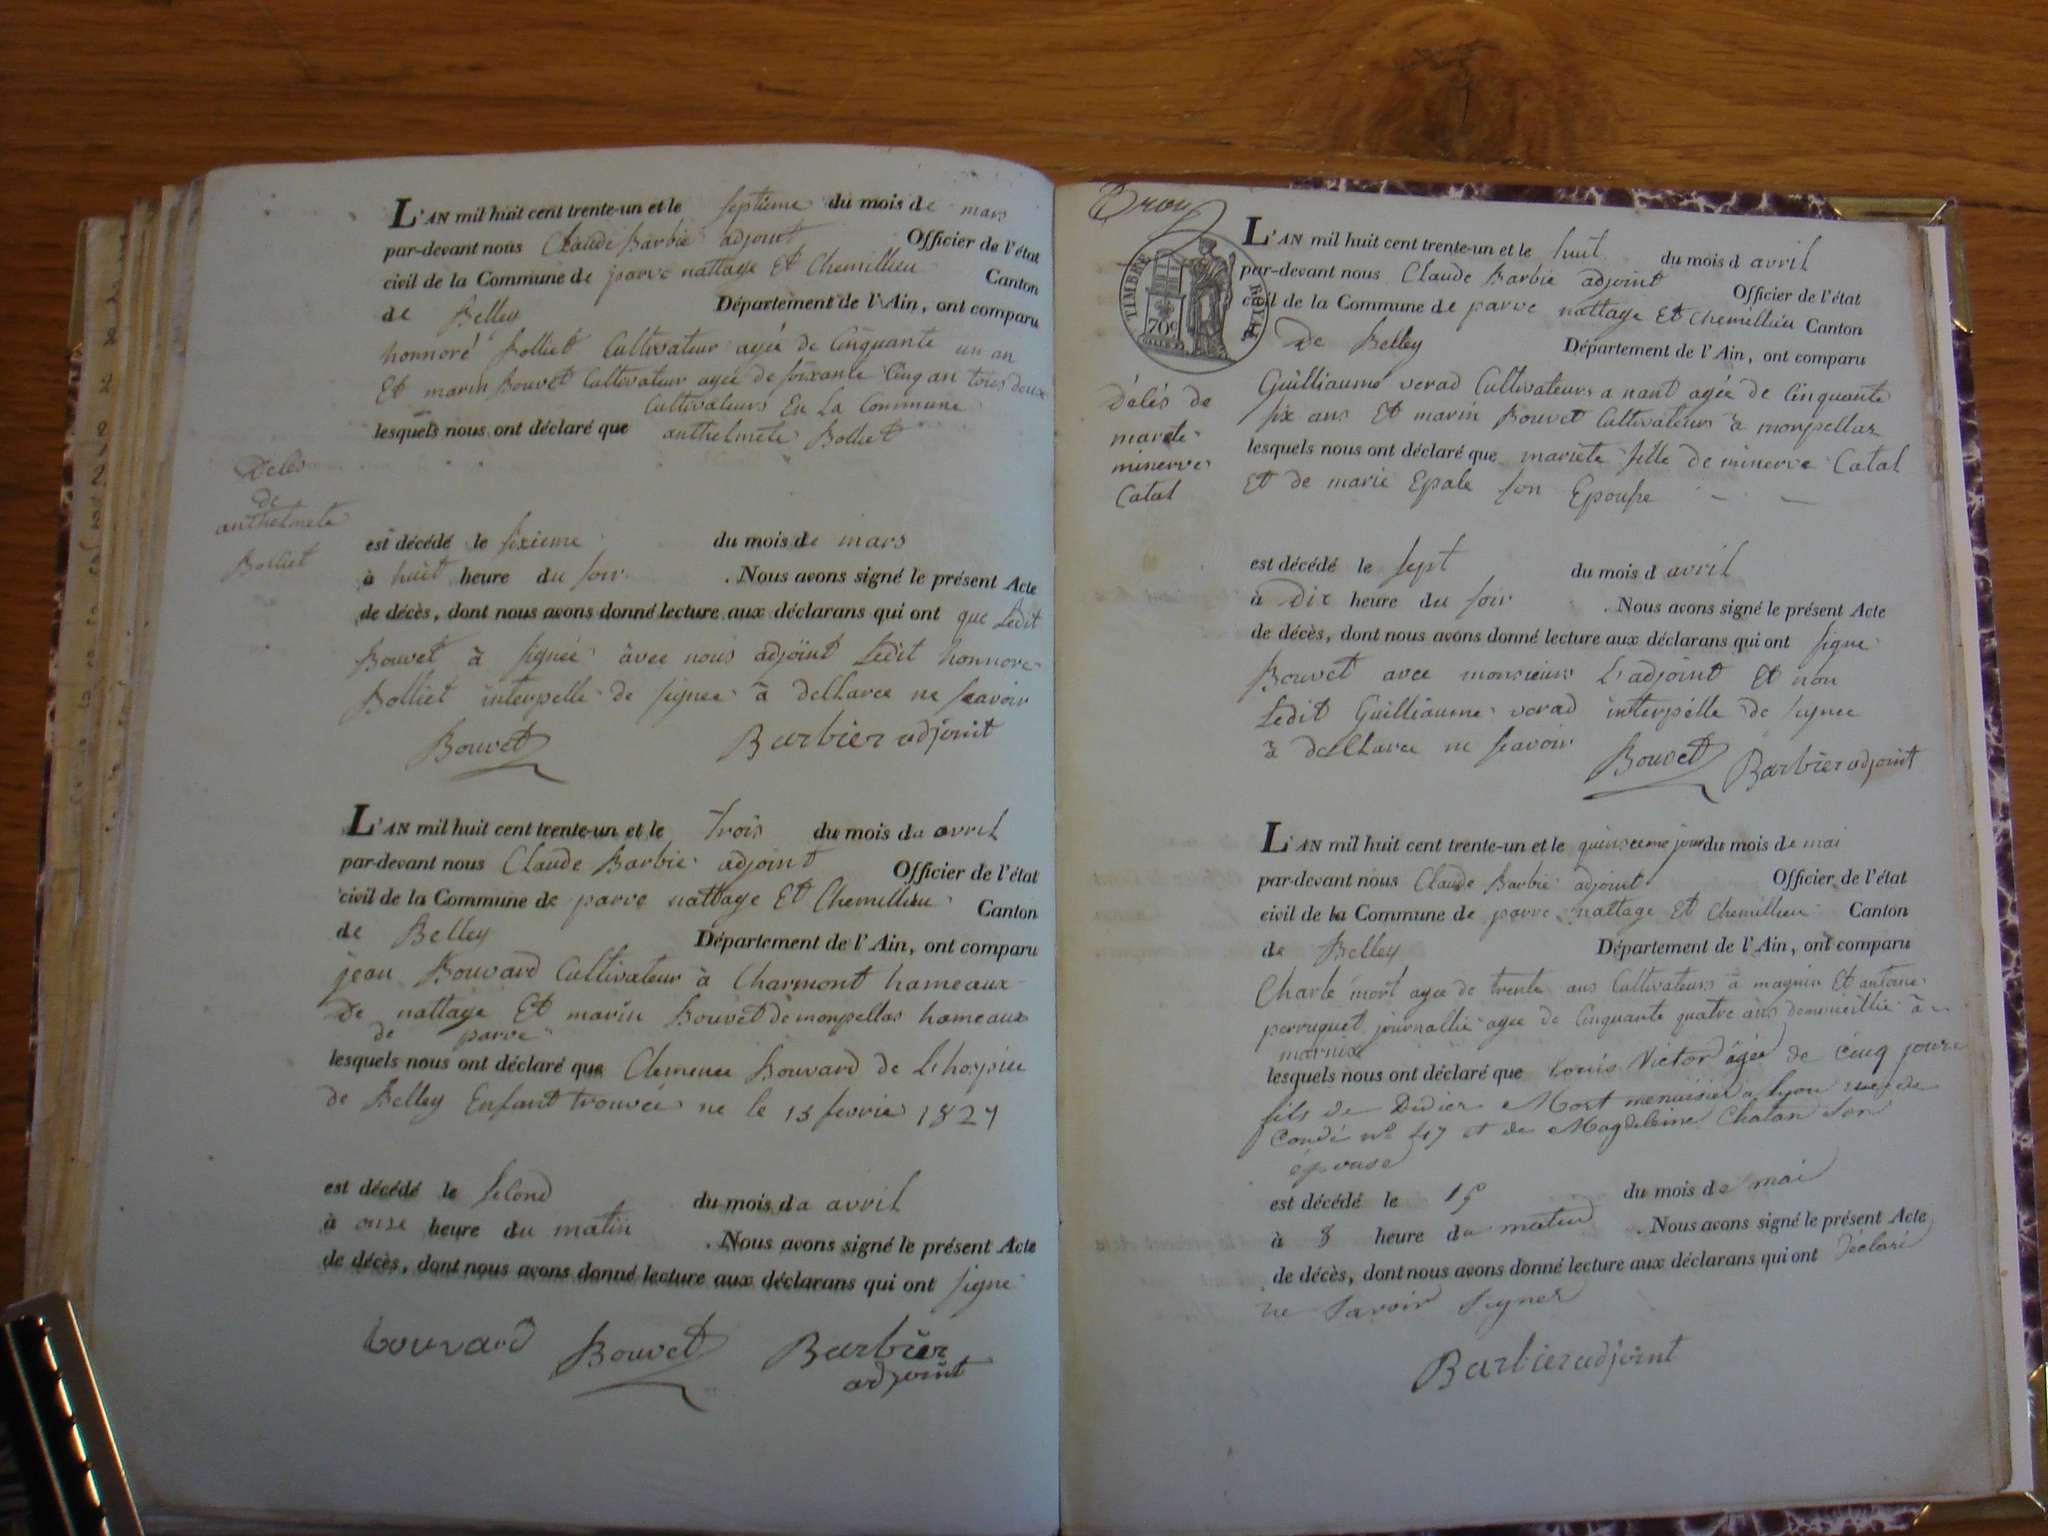 L'AN mil huit cent trente-un et le septieme du mois de mars
par-devant nous Claude Barbié adjoint Officier de l'état
civil de la Commune de parve nattage Et Chemillieu Canton
de Belley Département de l'Ain, ont comparu
honnoré Bolliet Cultivateur agée de Cinquante un an
Et marin Bouvet Cultivateur agee de soixante Cinq an tous deux
Cultivateurs En La Commune
lesquels nous ont déclaré que anthelmete Bolliet
Delés
de
anthelmete
Bolliet
est décédé le sixieme du mois de mars
à huit heure du soir . Nous avons signé le présent Acte
de décès, dont nous avons donné lecture aux déclarans qui ont que Ledit
Bouvet à signée avec nous adjoint Ledit honnore
Bolliet interpelle de signee à dellaree ne scavoir
Bouvet Barbier adjoint
L'AN mil huit cent trente-un et le trois du mois da avril
par-devant nous Claude Barbié adjoint Officier de l'état
civil de la Commune de parve nattage Et Chemillieu Canton
de Belley Département de l'Ain, ont comparu
jean Bouvard Cultivateur à Charmont hameaux
De nattage Et marin Bouvet de monpellas hameaux
de parve
lesquels nous ont déclaré que Clemence Bouvard de Lhospice
de Belley Enfant trouvée ne le 15 fevrié 1827
est décédé le second du mois da avril
à onse heure du matin . Nous avons signé le présent Acte
de décès, dont nous avons donné lecture aux déclarans qui ont signe
bouvard Bouvet Barbier
adjoint
TIMBRE ROYAL
70c
L'AN mil huit cent trente-un et le huit du mois d avril
par-devant nous Claude Barbié adjoint Officier de l'état
civil de la Commune de parve nattage Et Chemillieu Canton
De Belley Département de l'Ain, ont comparu
Guilliaume verad Cultivateurs a nant agée de Cinquante
six ans Et marin Bouvet Cultivateurs à monpellaz
lesquels nous ont déclaré que mariete fille de minerve Catal
Et de marie Epale son Epouse
Délés de
marete
minerve
Catal
est décédé le sept du mois d avril
à Dix heure du soir . Nous avons signé le présent Acte
de décès, dont nous avons donné lecture aux déclarans qui ont signe
Bouvet avec monsieurs L'adjoint Et non
Ledit Guilliaume verad interpélle de signee
à dellaree ne scavoir Bouvet Barbier adjoint
L'AN mil huit cent trente-un et le quinseeme jour du mois de mai
par-devant nous Claude Barbié adjoint Officier de l'état
civil de la Commune de parve nattage Et Chemillieu Canton
de Belley Département de l'Ain, ont comparu
Charle mort agee de trente ans Cultivateurs à magnin Et antoine
perruquet journallié agee de Cinquante quatre ans à
marnix
lesquels nous ont déclaré que Louis Victor âgée de cinq jours
fils de Didier Mort menuisier à Lyon rue de
Condé no et de Magdeleine Chatan son
épouse
est décédé le 15 du mois de mai
à 8 heure du matin . Nous avons signé le présent Acte
de décès, dont nous avons donné lecture aux déclarans qui ont déclaré
ne savoir signer
Barbier adjoint